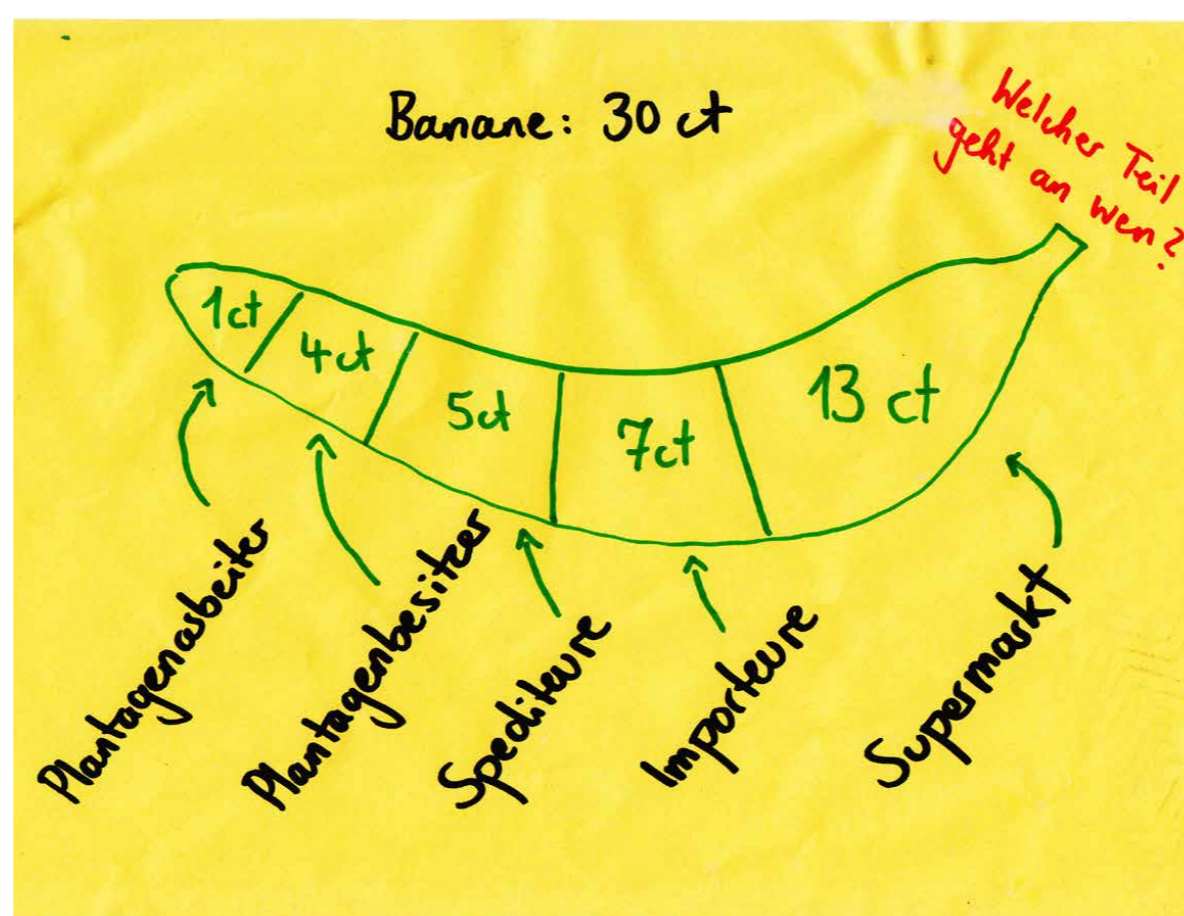 Banane: 30 ct
Welcher Teil
geht an wen?
1ct
4ct
5ct
7ct
13 ct
Plantagenarbeiter
Plantagenbesitzer
Spediteure
Importeure
Supermarkt